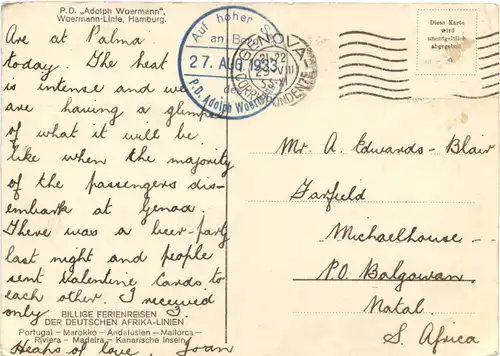 P.D. „Adolph Woermann”,
Woermann-Linie, Hamburg.
Are at Palma
today. The heat
is intense and we
are having a glimpse
of what it will be
like when the majority
of the passengers dis-
embark at Genoa.
There was a beer-party
last night and people
sent Valentine Cards to
each other. I received
only 3.
BILLIGE FERIENREISEN
DER DEUTSCHEN AFRIKA-LINIEN
Portugal – Marokko – Andalusien – Mallorca –
Riviera – Madeira – Kanarische Inseln
Heaps of love, Joan
Auf hoher See
an Bord
27. AUG 1933
des
P.D. Adolph Woermann
GENOVA
CORRISPONDENZE
Diese Karte
wird
unentgeltlich
abgegeben
Mr. A. Edwards-Blair
Garfield
Michaelhouse –
P.O. Balgowan
Natal.
S. Africa